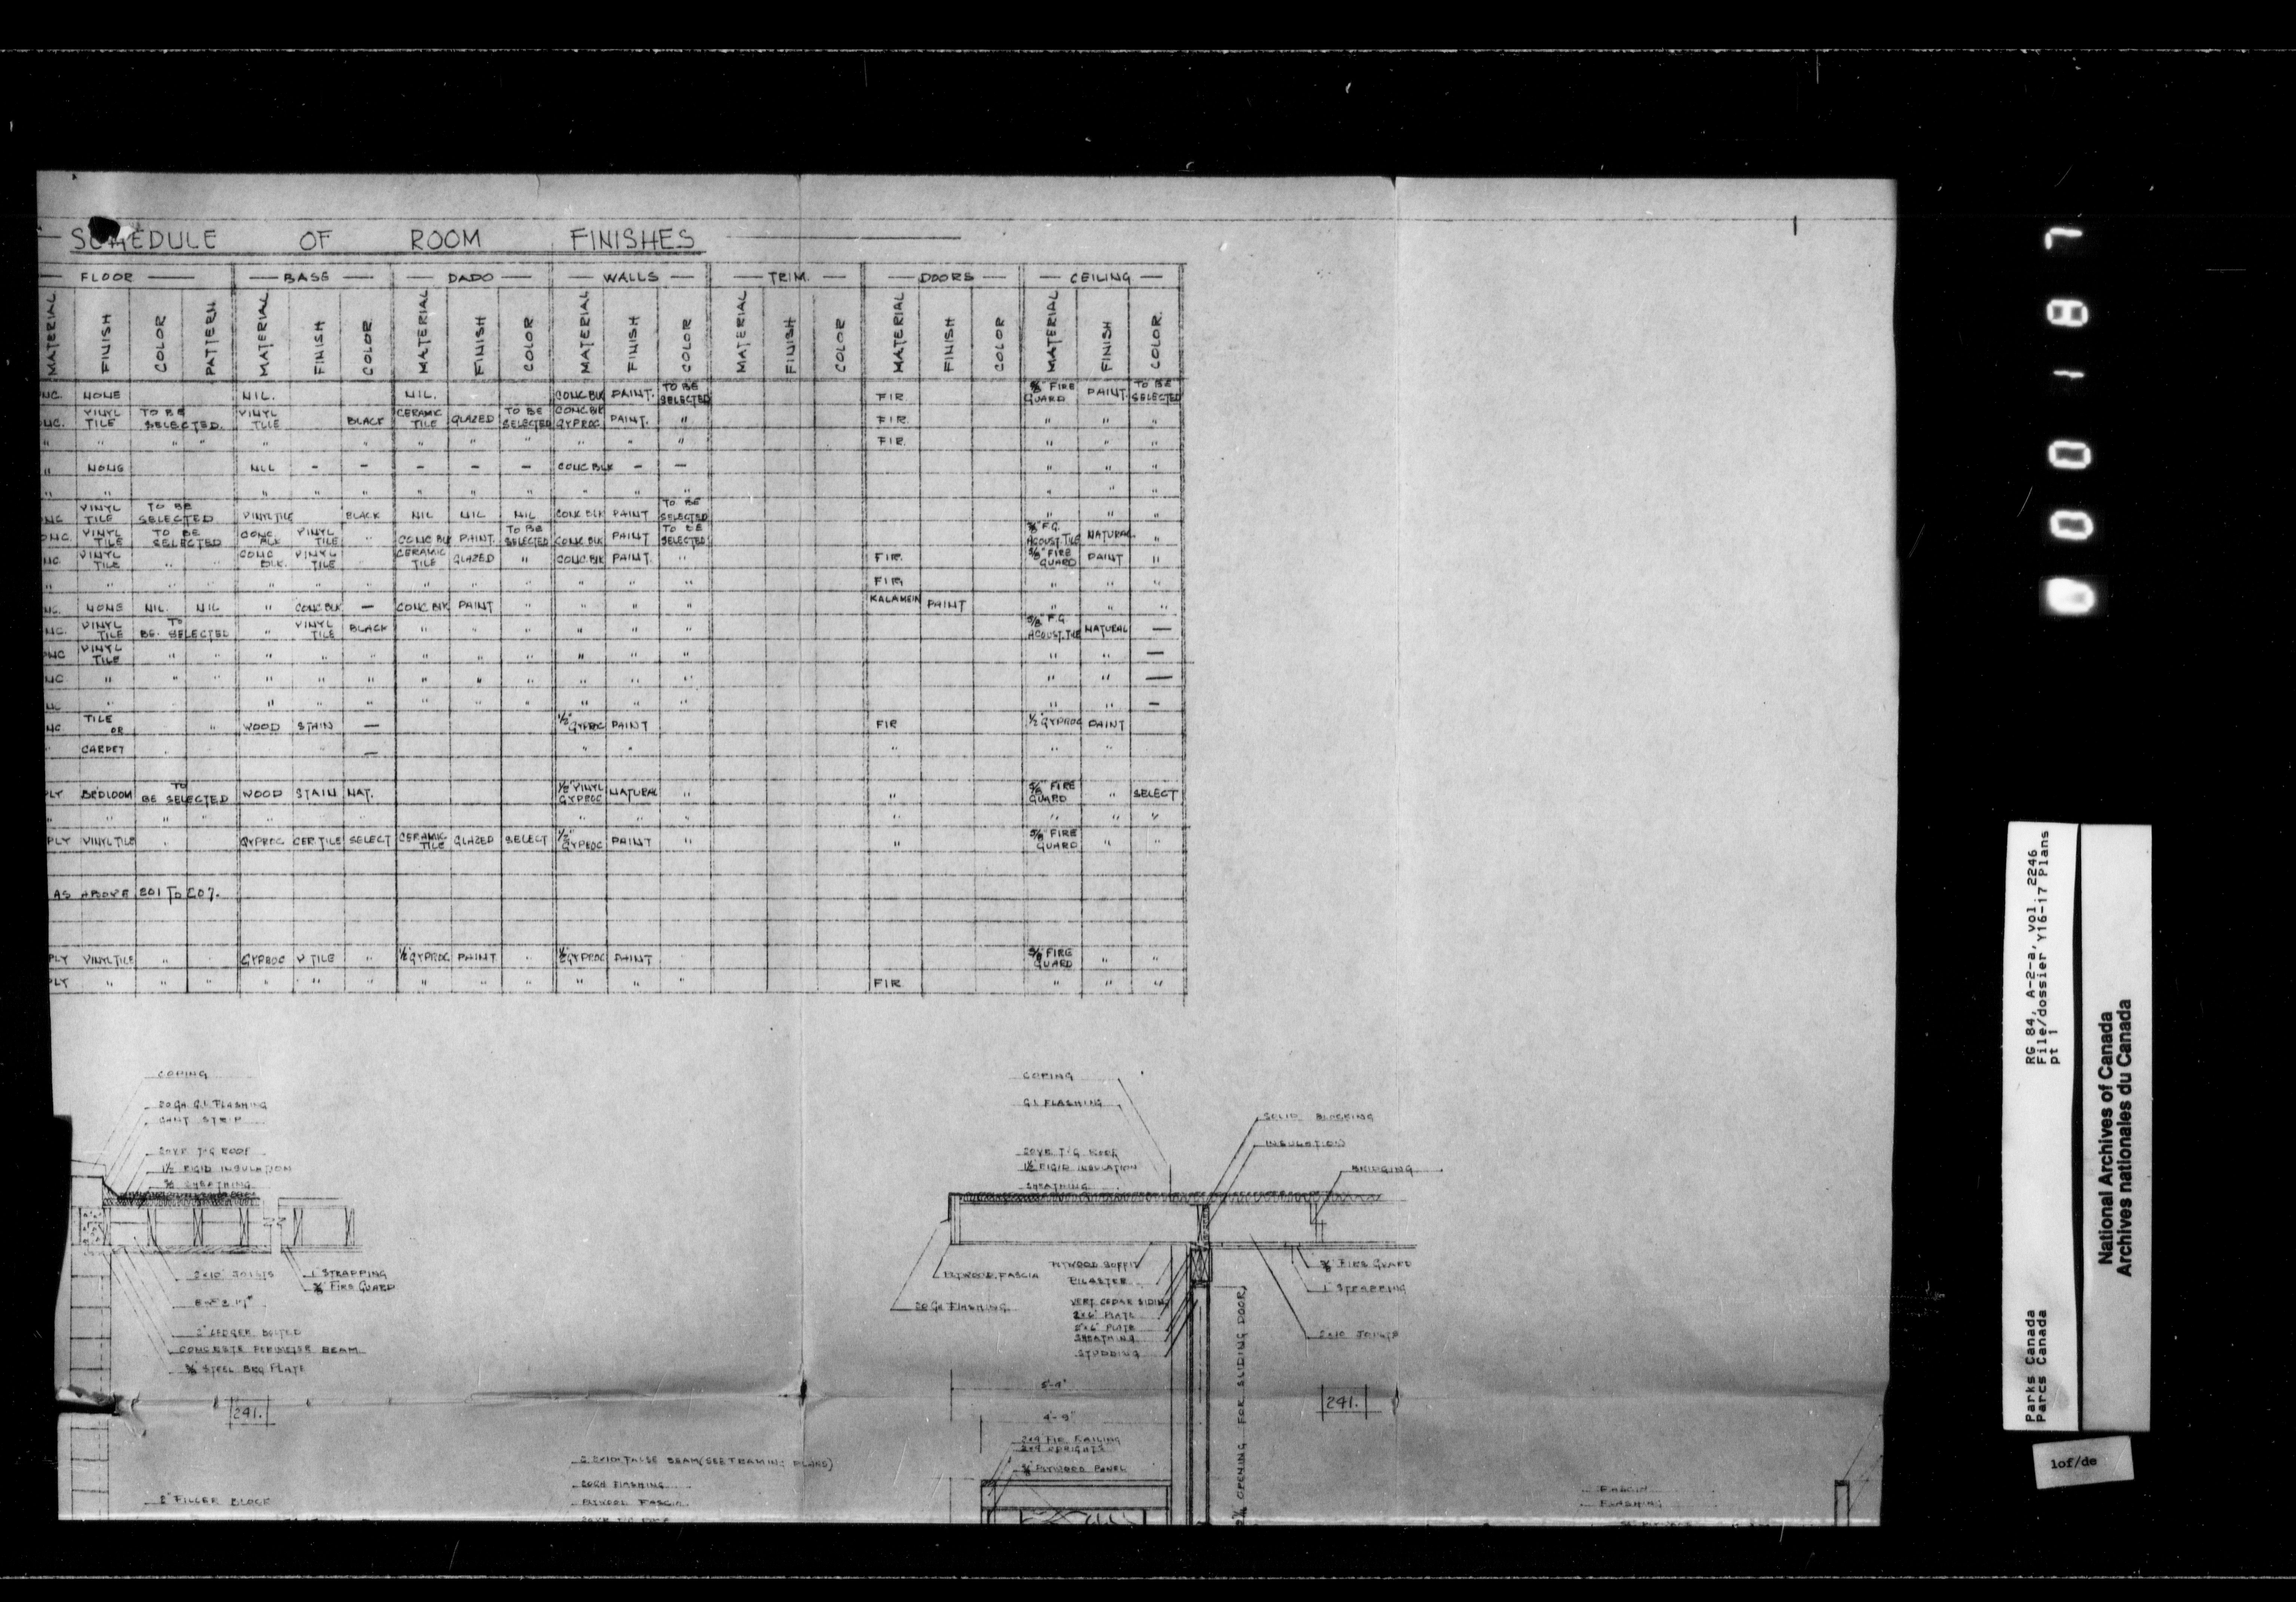 SCHEDULE OF ROOM FINISHES
FLOOR BASE DADO WALLS TRIM. DOORS CEILING
MATERIAL FINISH COLOR PATTERN MATERIAL FINISH COLOR MATERIAL FINISH COLOR MATERIAL FINISH COLOR MATERIAL FINISH COLOR MATERIAL FINISH COLOR MATERIAL FINISH COLOR.
NC. NONE NIL. NIL. CONC BLK PAINT. TO BE SELECTED FIR. 5/8" FIRE GUARD PAINT. TO BE SELECTED
NC. VINYL TILE TO BE SELECTED. VINYL TILE BLACK CERAMIC TILE GLAZED TO BE SELECTED CONC BLK GYPROC PAINT. " FIR. " " "
" " " " " " " " " " " " FIR. " " "
" NONE NIL - - - - - CONC BLK - - " " "
" " " " " " " " " " " " " "
NC VINYL TILE TO BE SELECTED VINYL TILE BLACK NIL NIL NIL CONC BLK PAINT TO BE SELECTED " " "
ONC. VINYL TILE TO BE SELECTED CONC BLK VINYL TILE " CONC BLK PAINT. TO BE SELECTED CONC BLK PAINT TO BE SELECTED 5/8" F.G. ACOUST. TILE NATURAL "
NC. VINYL TILE " " CONC BLK. VINYL TILE " CERAMIC TILE GLAZED " CONC BLK PAINT. " FIR. 5/8" FIRE GUARD PAINT "
" " " " " " " " " " " " " FIR. " " "
NC. NONE NIL. NIL " CONC BLK — CONC BLK PAINT " " " " KALAMEIN PAINT " " "
NC. VINYL TILE TO BE SELECTED " VINYL TILE BLACK " " " " " " 5/8" F.G. ACOUST. TILE NATURAL —
ONC VINYL TILE " " " " " " " " " " " " " —
NC " " " " " " " " " " " " " " —
NC " " " " " " " " " " " " —
NC. TILE OR " WOOD STAIN — 1/2" GYPROC PAINT FIR 1/2" GYPROC PAINT
" CARPET — " " " " "
PLY BEDLOOM TO BE SELECTED WOOD STAIN NAT. 1/2" VINYL GYPROC NATURAL " " 5/8" FIRE GUARD " SELECT
" " " " " " " " " " " " "
PLY VINYL TILE GYPROC CER. TILE SELECT CERAMIC TILE GLAZED SELECT 1/2" GYPROC PAINT " " 5/8" FIRE GUARD " "
AS ABOVE 201 TO 207.
PLY VINYL TILE " " GYPROC V TILE " 1/2" GYPROC PAINT " 1/2" GYPROC PAINT 5/8" FIRE GUARD " "
PLY " " " " " " " " " " " " FIR " " "
COPING
20 GA. G.I. FLASHING
CANT STRIP
20 YR T/G ROOF
1½" RIGID INSULATION
SHEATHING
2x10" JOISTS
1" STRAPPING
5/8" FIRE GUARD
2" LEDGER BOLTED
CONCRETE PERIMETER BEAM
STEEL BRG PLATE
241.
2" FILLER BLOCK
2x10 FALSE BEAM (SEE FRAMING PLANS)
20GA FLASHING
PLYWOOD FASCIA
20 YR T/G ROOF
COPING
G.I. FLASHING
20 YR T/G ROOF
1½" RIGID INSULATION
SHEATHING
SOLID BLOCKING
INSULATION
BRIDGING
PLYWOOD FASCIA
20 GA FLASHING
PLYWOOD SOFFIT
PILASTER
VERT. CEDAR SIDING
2x6" PLATE
2x6" PLATE
SHEATHING
STUDDING
5/8" FIRE GUARD
1" STRAPPING
2x10 JOISTS
OPENING FOR SLIDING DOOR
4'-9"
241.
2x4 FIR RAILING
2x4 UPRIGHTS
PLYWOOD PANEL
FASCIA
FLASHING
0 0 0 1 8 7
RG 84, A-2-a, vol. 2246
File/dossier Y16-17 Plans
pt 1
Parks Canada
Parcs Canada
National Archives of Canada
Archives nationales du Canada
1of/de